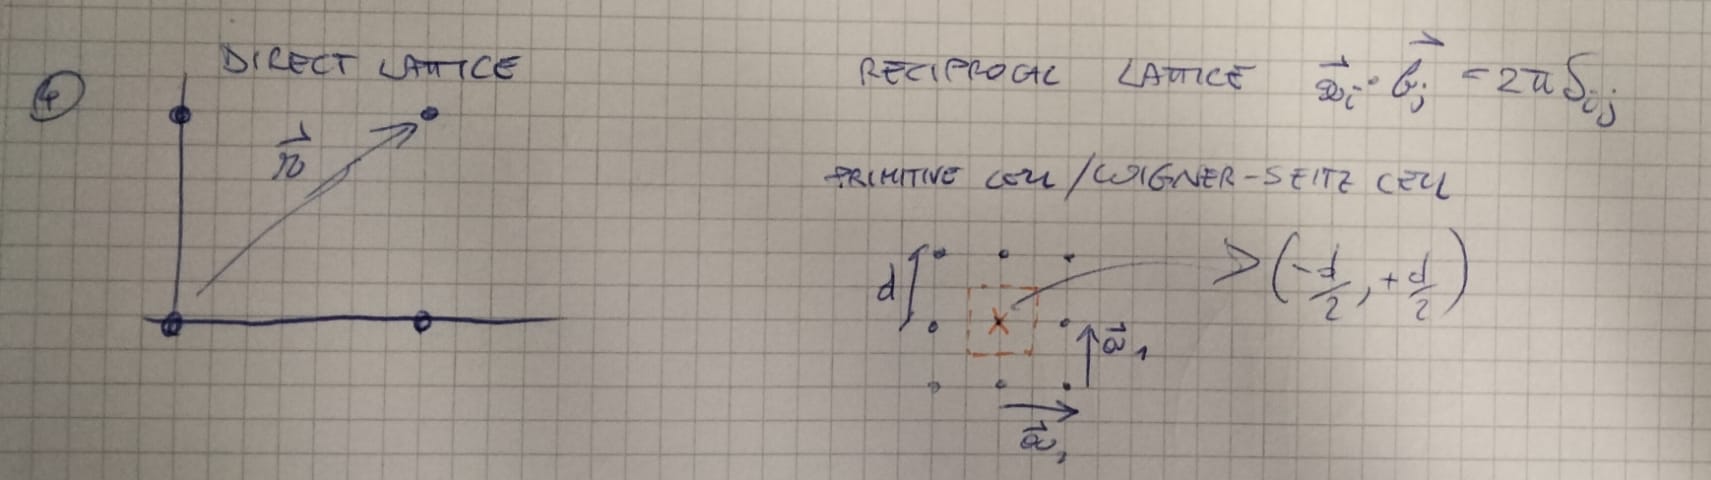 ④
DIRECT LATTICE
r⃗
RECIPROCAL LATTICE a⃗ᵢ · b⃗ⱼ = 2π δᵢⱼ
PRIMITIVE CELL / WIGNER-SEITZ CELL
d
(-d/2, +d/2)
a⃗₁
a⃗₁